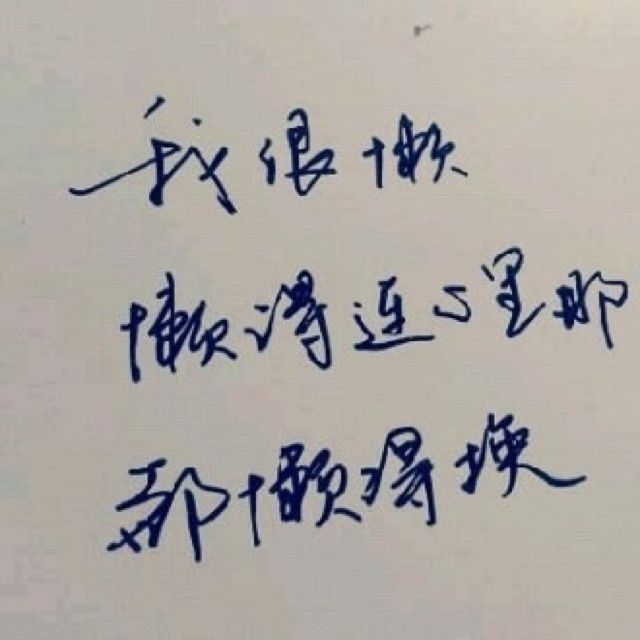 我很懒
懒得连心里那
都懒得换